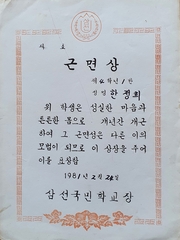 근면상
제4학년 1반
성명 한정희
위 학생은 성실한 마음과
튼튼한 몸으로 개년간 개근
하여 그 근면성은 다른 이의
모범이 되므로 이 상장을 주어
이를 표창함
1981년 2월 24일
삼선국민학교장